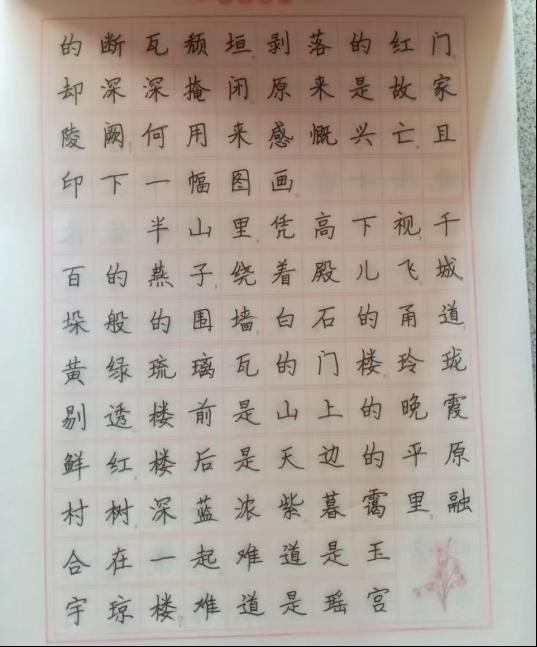 的断瓦颓垣,剥落的红门,
却深深掩闭,原来是故家
陵阙,何用来感慨兴亡,且
印下一幅图画
半山里,凭高下视,千
百的燕子,绕着殿儿飞,城
垛般的围墙,白石的甬道,
黄绿琉璃瓦的门楼,玲珑
剔透,楼前是山上的晚霞
鲜红,楼后是天边的平原
村树,深蓝浓紫,暮霭里,融
合在一起,难道是玉
宇琼楼?难道是瑶宫